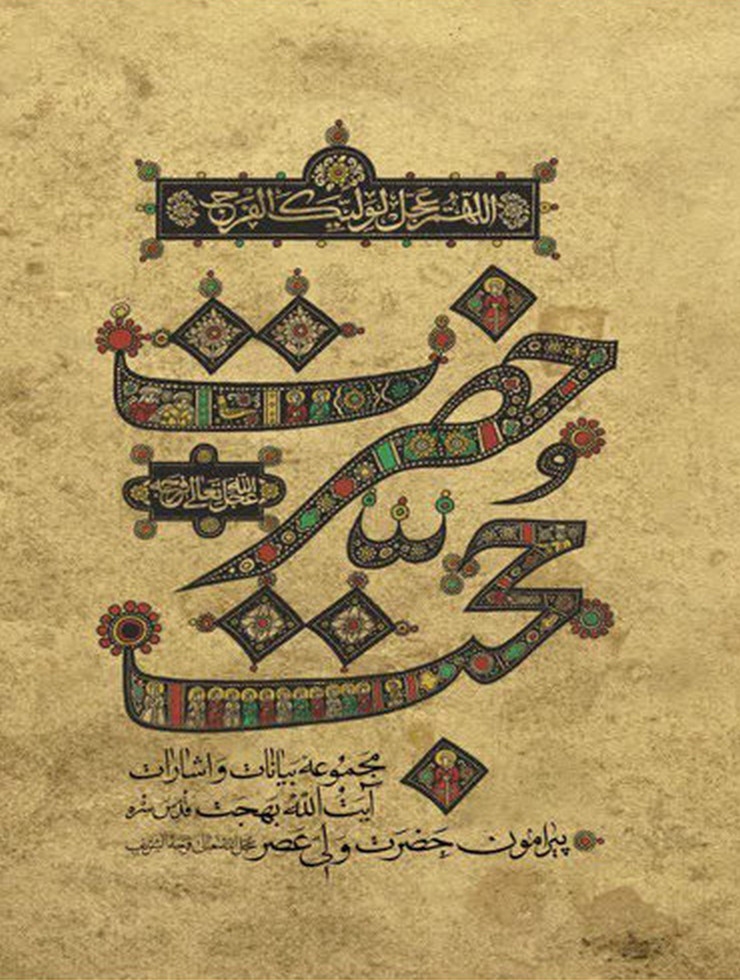 اللهم عجل لولیک الفرج
حضرت
عجل الله تعالی فرجه
حجت
مجموعه بیانات و اشارات
آیت الله بهجت قدس سره
پیرامون حضرت ولی عصر عجل الله تعالی فرجه الشریف